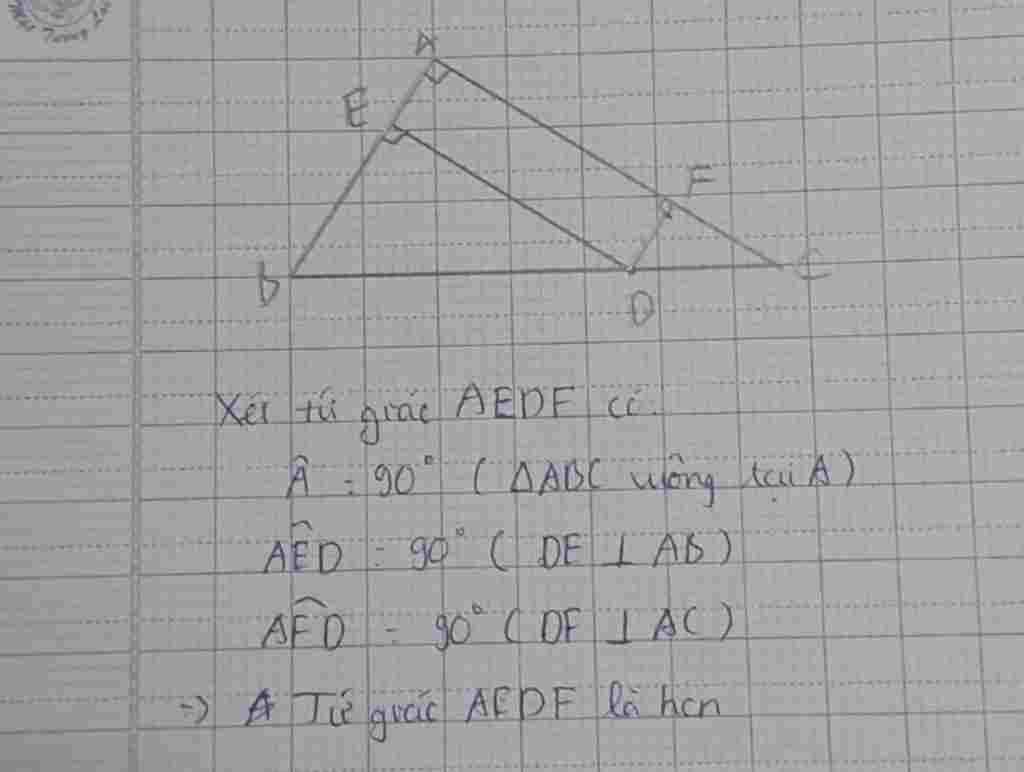 A
E
F
B
D
C
Xét tứ giác AEDF có
Â = 90° (ΔABC vuông tại A)
AÊD = 90° (DE ⊥ AB)
AF̂D = 90° (DF ⊥ AC)
=> Tứ giác AEDF là hcn